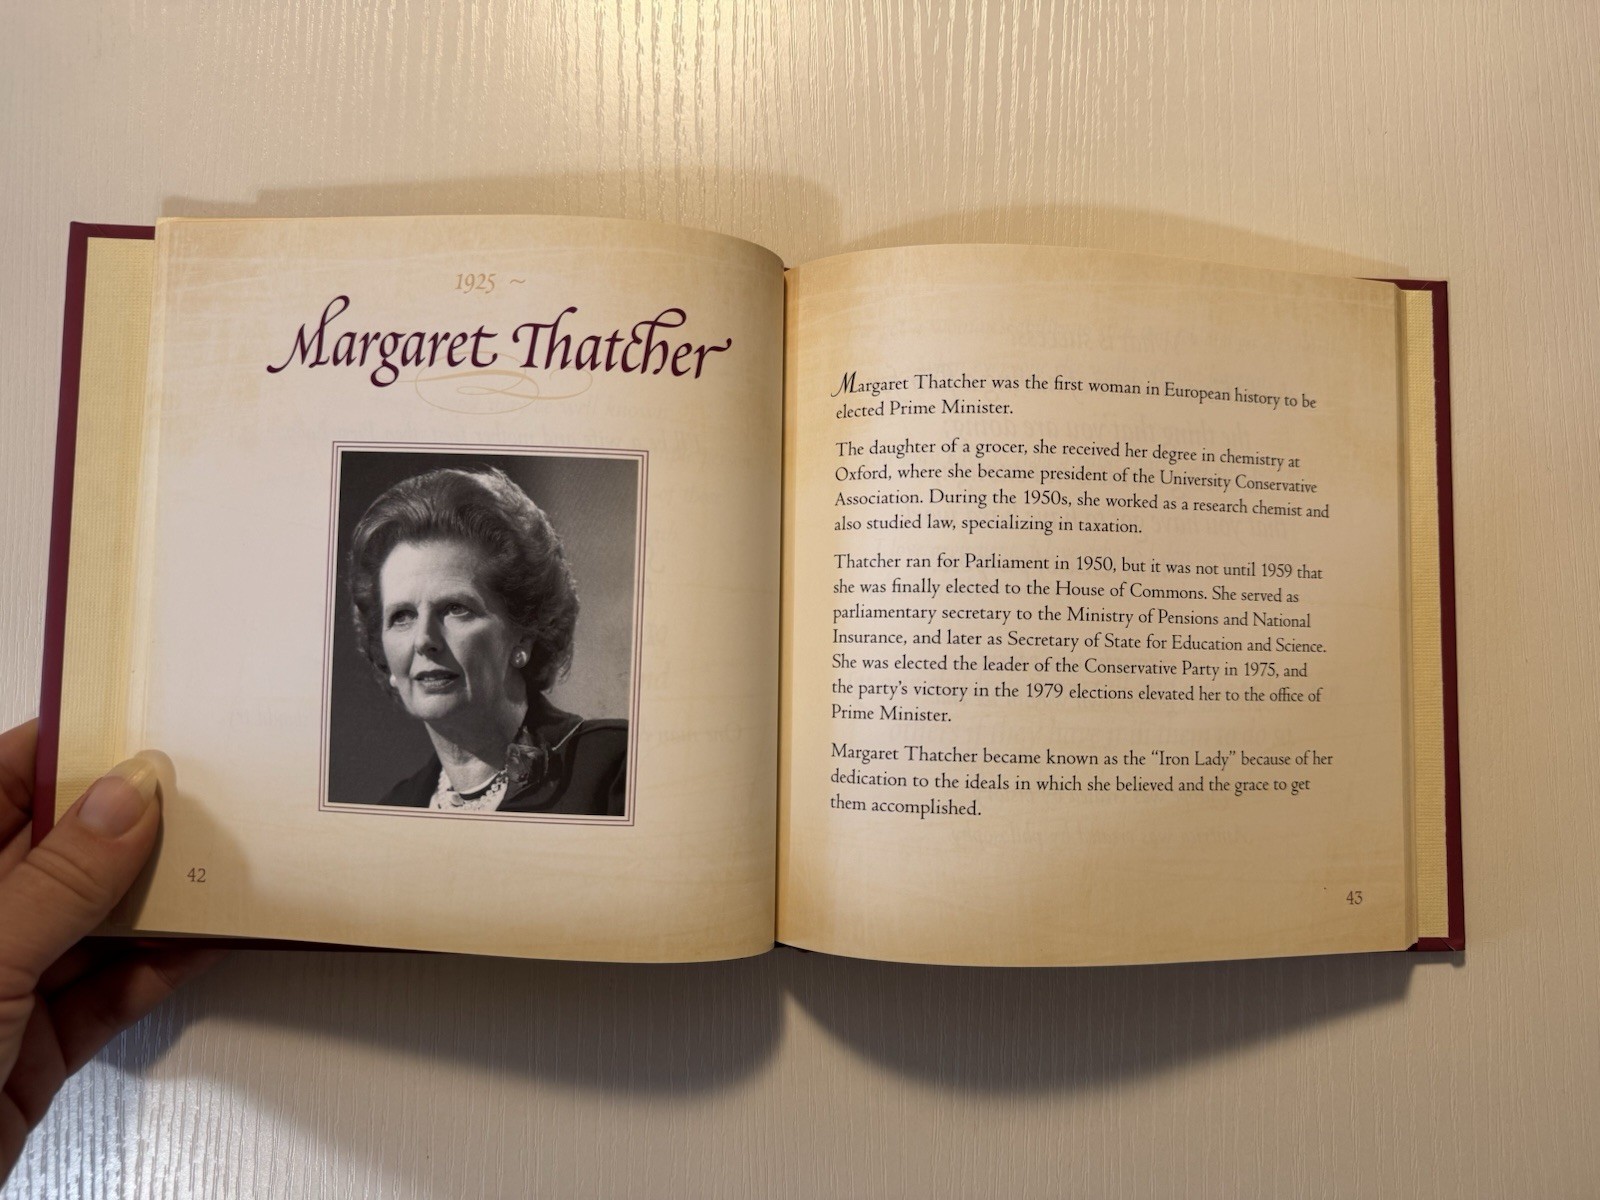 1925 ~
Margaret Thatcher
42
Margaret Thatcher was the first woman in European history to be
elected Prime Minister.
The daughter of a grocer, she received her degree in chemistry at
Oxford, where she became president of the University Conservative
Association. During the 1950s, she worked as a research chemist and
also studied law, specializing in taxation.
Thatcher ran for Parliament in 1950, but it was not until 1959 that
she was finally elected to the House of Commons. She served as
parliamentary secretary to the Ministry of Pensions and National
Insurance, and later as Secretary of State for Education and Science.
She was elected the leader of the Conservative Party in 1975, and
the party’s victory in the 1979 elections elevated her to the office of
Prime Minister.
Margaret Thatcher became known as the “Iron Lady” because of her
dedication to the ideals in which she believed and the grace to get
them accomplished.
43